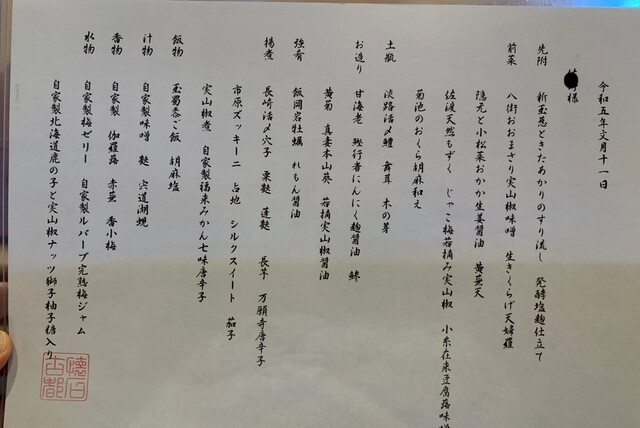 令和五年文月十一日
様
先附 新玉葱ときたあかりのすり流し 発酵塩麹仕立て
前菜 八街おおまさり実山椒味噌 生きくらげ天婦羅
隠元と小松菜おかか生姜醤油 黄蕪天
佐渡天然もずく じゃこ梅若摘み実山椒 小糸在来豆腐蕗味噌
菊池のおくら胡麻和え
土瓶 淡路活〆鱧 舞茸 木の芽
お造り 甘海老 鰹行者にんにく麹醤油 鯵
黄菊 真妻本山葵 若摘実山椒醤油
強肴 飯岡岩牡蠣 れもん醤油
揚煮 長崎活〆穴子 粟麩 蓮麩 長芋 万願寺唐辛子
市原ズッキーニ 占地 シルクスイート 茄子
実山椒煮 自家製福来みかん七味唐辛子
飯物 玉蜀黍ご飯 胡麻塩
汁物 自家製味噌 麩 宍道湖蜆
香物 自家製 伽羅蕗 赤蕪 香小梅
水物 自家製梅ゼリー 自家製ルバーブ完熟梅ジャム
自家製北海道鹿の子と実山椒ナッツ獅子柚子糖入り
懐石
古都